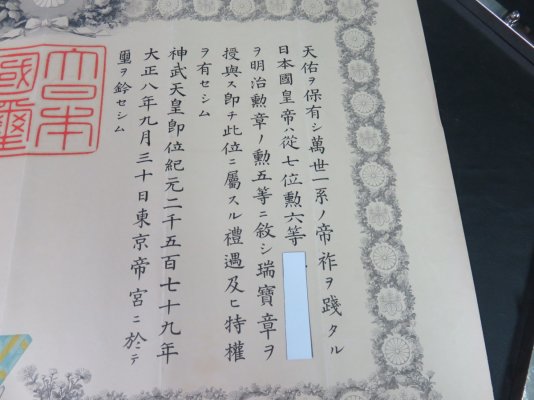 天佑ヲ保有シ萬世一系ノ帝祚ヲ踐タル
日本國皇帝ハ從七位勲六等
ヲ明治勲章ノ勲五等ニ敘シ瑞寶章ヲ
授與ス即チ此位ニ屬スル禮遇及ヒ特權
ヲ有セシム
神武天皇即位紀元二千五百七十九年
大正八年九月三十日東京帝宮ニ於テ
璽ヲ鈐セシム
大日本
國璽